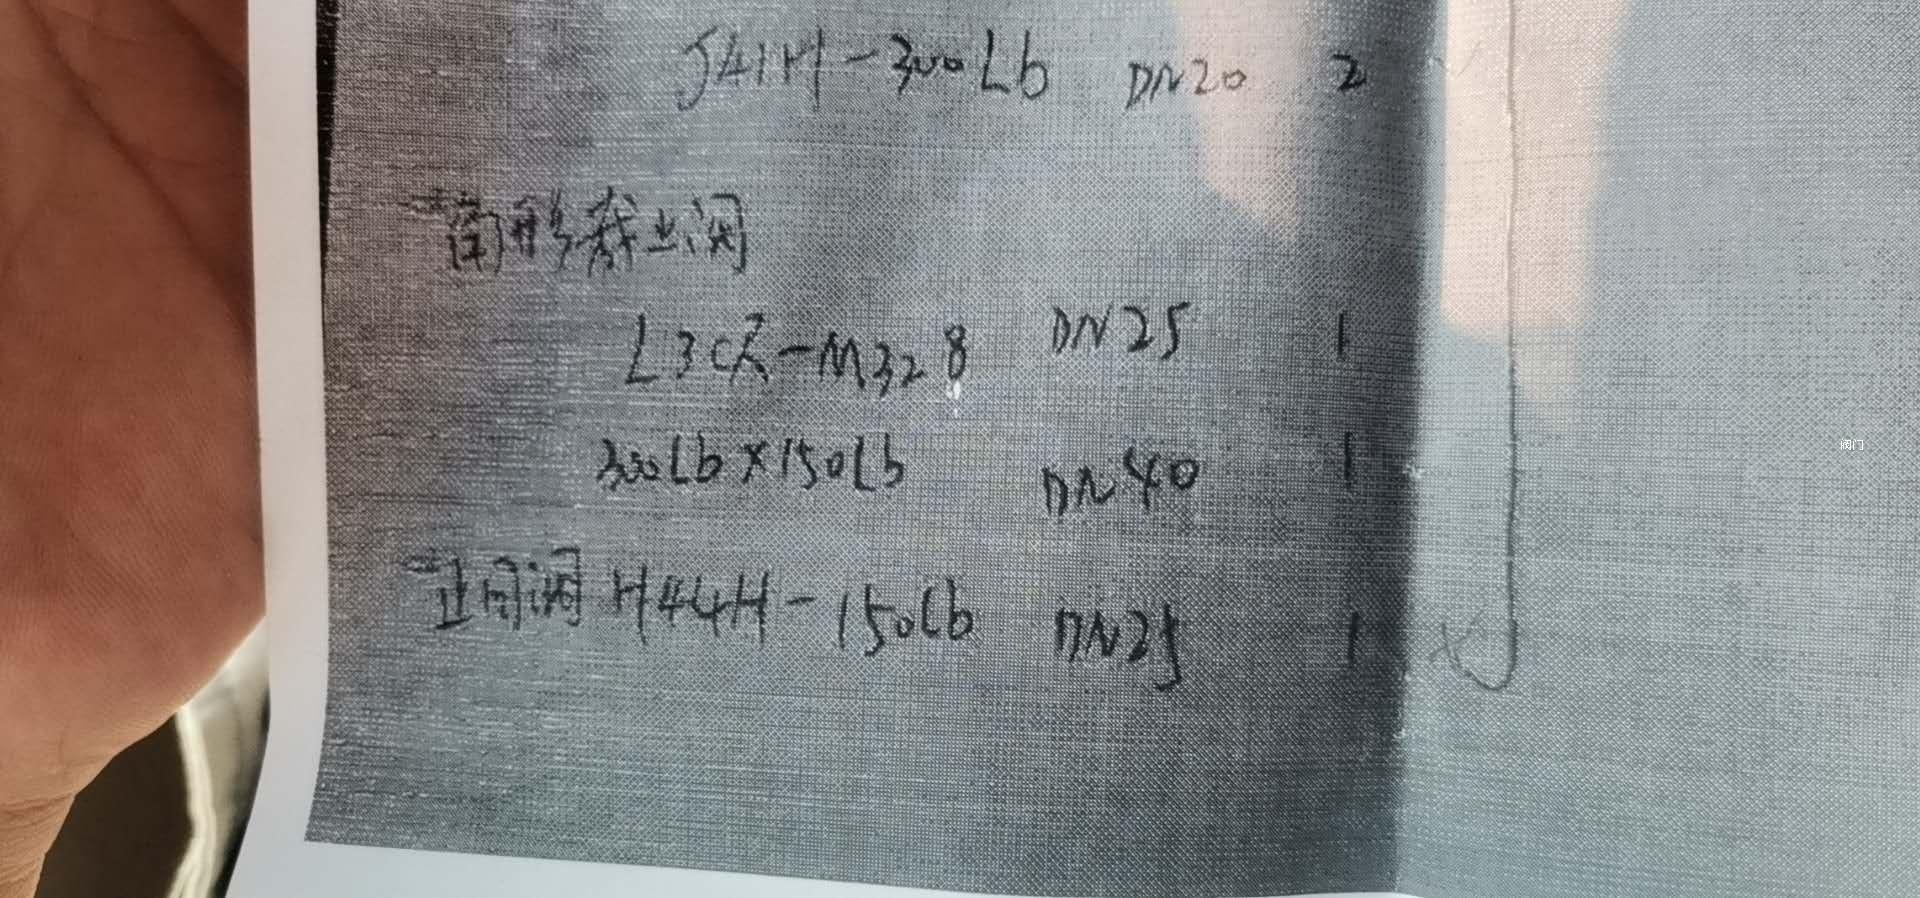 J41H-300Lb DN20 2
一筒形截止阀
L3CR-M328 DN25 1
300Lb×150Lb DN40 1
一止回阀 H44H-150Lb DN25 1
阀门